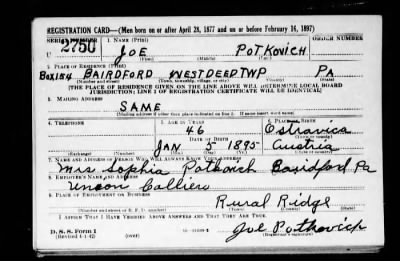 REGISTRATION CARD—(Men born on or after April 28, 1877 and on or before February 16, 1897)
SERIAL NUMBER 1. NAME (Print) ORDER NUMBER
U 2750 JOE POTKOVICH
(First) (Middle) (Last)
2. PLACE OF RESIDENCE (Print)
BOX 184 BAIRDFORD WEST DEED TWP PA
(Number and street) (Town, township, village, or city) (County) (State)
[THE PLACE OF RESIDENCE GIVEN ON THE LINE ABOVE WILL DETERMINE LOCAL BOARD
JURISDICTION; LINE 2 OF REGISTRATION CERTIFICATE WILL BE IDENTICAL]
3. MAILING ADDRESS
SAME
(Mailing address if other than place indicated on line 2. If same insert word same)
4. TELEPHONE 5. AGE IN YEARS 6. PLACE OF BIRTH
46 Ostravica
DATE OF BIRTH (Town or county)
JAN 5 1895 Austria
(Exchange) (Number) (Mo.) (Day) (Yr.) (State or country)
7. NAME AND ADDRESS OF PERSON WHO WILL ALWAYS KNOW YOUR ADDRESS
Mrs Sophia Potkovich Bairdford Pa
8. EMPLOYER'S NAME AND ADDRESS
Union Collieri
9. PLACE OF EMPLOYMENT OR BUSINESS
Rural Ridge
(Number and street or R. F. D. number) (Town) (County) (State)
I AFFIRM THAT I HAVE VERIFIED ABOVE ANSWERS AND THAT THEY ARE TRUE.
D. S. S. Form 1
(Revised 4-1-42) (over) Joe Potkovich
(Registrant's signature)